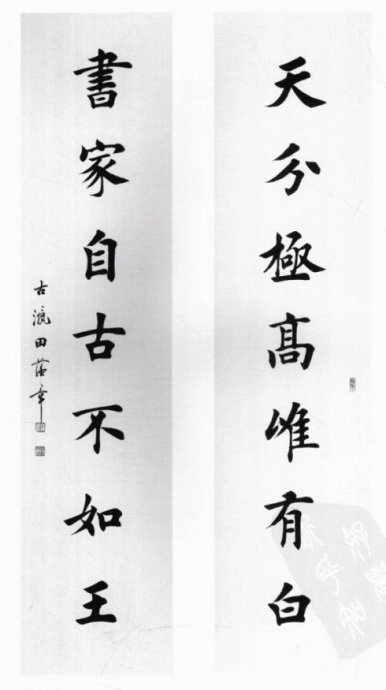 天分極高惟有白
書家自古不如王
古瀛田蘊章